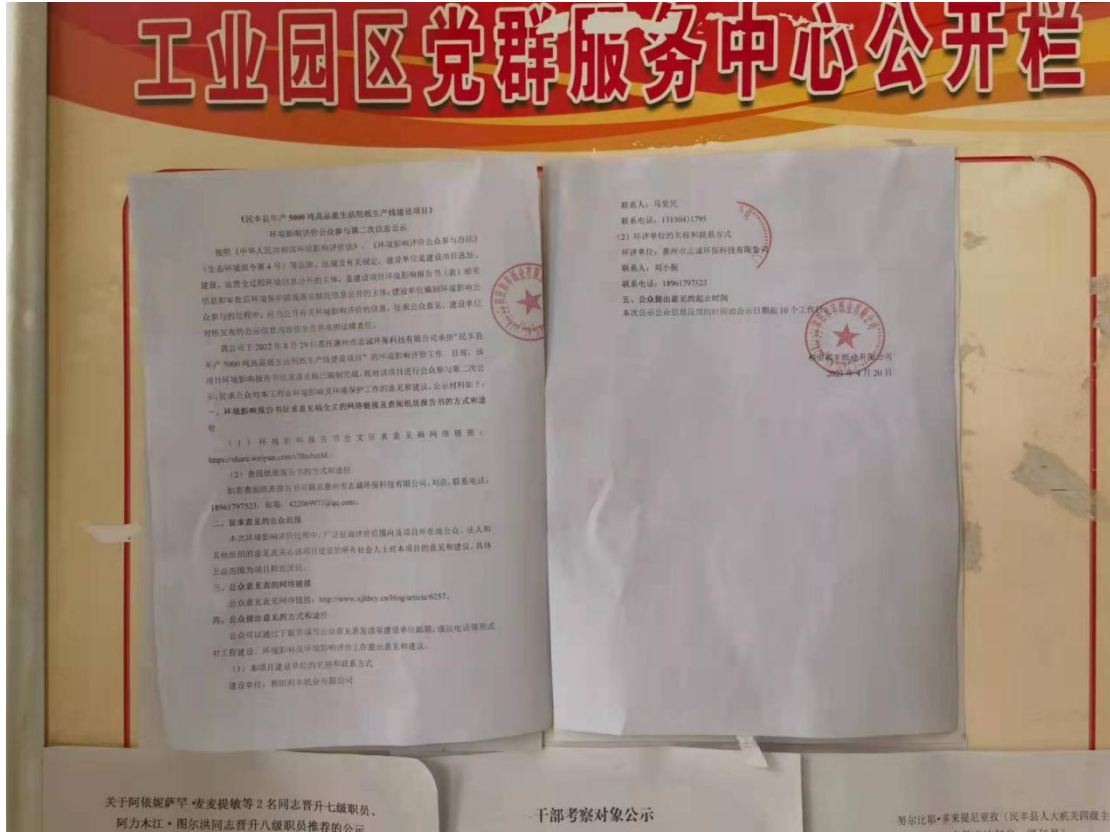 工业园区党群服务中心公开栏
《民丰县年产5000吨高品质生活用纸生产线建设项目》
环境影响评价公众参与第二次信息公示
按照《中华人民共和国环境影响评价法》、《环境影响评价公众参与办法》
(生态环境部令第4号)等法律、法规及有关规定，建设单位是建设项目选址、
建设、运营全过程环境信息公开的主体，是建设项目环境影响报告书(表)相关
信息和审批后环境保护措施落实情况信息公开的主体；建设单位编制环境影响公
众参与的过程中，应当公开有关环境影响评价的信息，征求公众意见。建设单位
对所发布的公示信息内容负全责并承担法律责任。
我公司于2022年8月29日委托惠州市志诚环保科技有限公司承担"民丰县
年产5000吨高品质生活用纸生产线建设项目"的环境影响评价工作。目前，该
项目环境影响报告书征求意见稿已编制完成，现对该项目进行公众参与第二次公
示，征求公众对本工程在环境影响及环境保护工作的意见和建议。公示材料如下：
一、环境影响报告书征求意见稿全文的网络链接及查阅纸质报告书的方式和途
径
(1)环境影响报告书全文征求意见稿网络链接：
https://share.weiyun.com/
(2)查阅纸质报告书的方式和途径
如需查阅纸质报告书可联系惠州市志诚环保科技有限公司，刘总，联系电话：
18961797523，邮箱：422069971@qq.com。
二、征求意见的公众范围
本次环境影响评价过程中，广泛征询评价范围内及项目所在地公众、法人和
其他组织的意见及关心该项目建设的所有社会人士对本项目的意见和建议。具体
公众范围为项目附近居民。
三、公众意见表的网络链接
公众意见表见网络链接：http://www.xjhbcy.cn/blog/article/6257。
四、公众提出意见的方式和途径
公众可以通过下载并填写公众意见表发送至建设单位邮箱，或以电话等形式
对工程建设、环境影响及环境影响评价工作提出意见和建议。
(1)本项目建设单位的名称和联系方式
建设单位：和田和丰纸业有限公司
联系人：马党民
联系电话：13150431795
(2)环评单位的名称和联系方式
环评单位：惠州市志诚环保科技有限公司
联系人：刘小振
联系电话：18961797523
五、公众提出意见的起止时间
本次公示公众信息反馈的时间由公示日期起10个工作日。
和田和丰纸业有限公司
2023年4月20日
关于阿依妮萨罕·麦麦提敏等2名同志晋升七级职员、
阿力木江·图尔洪同志晋升八级职员推荐的公示
干部考察对象公示
努尔比耶·多来提尼亚孜(民丰县人大机关四级主